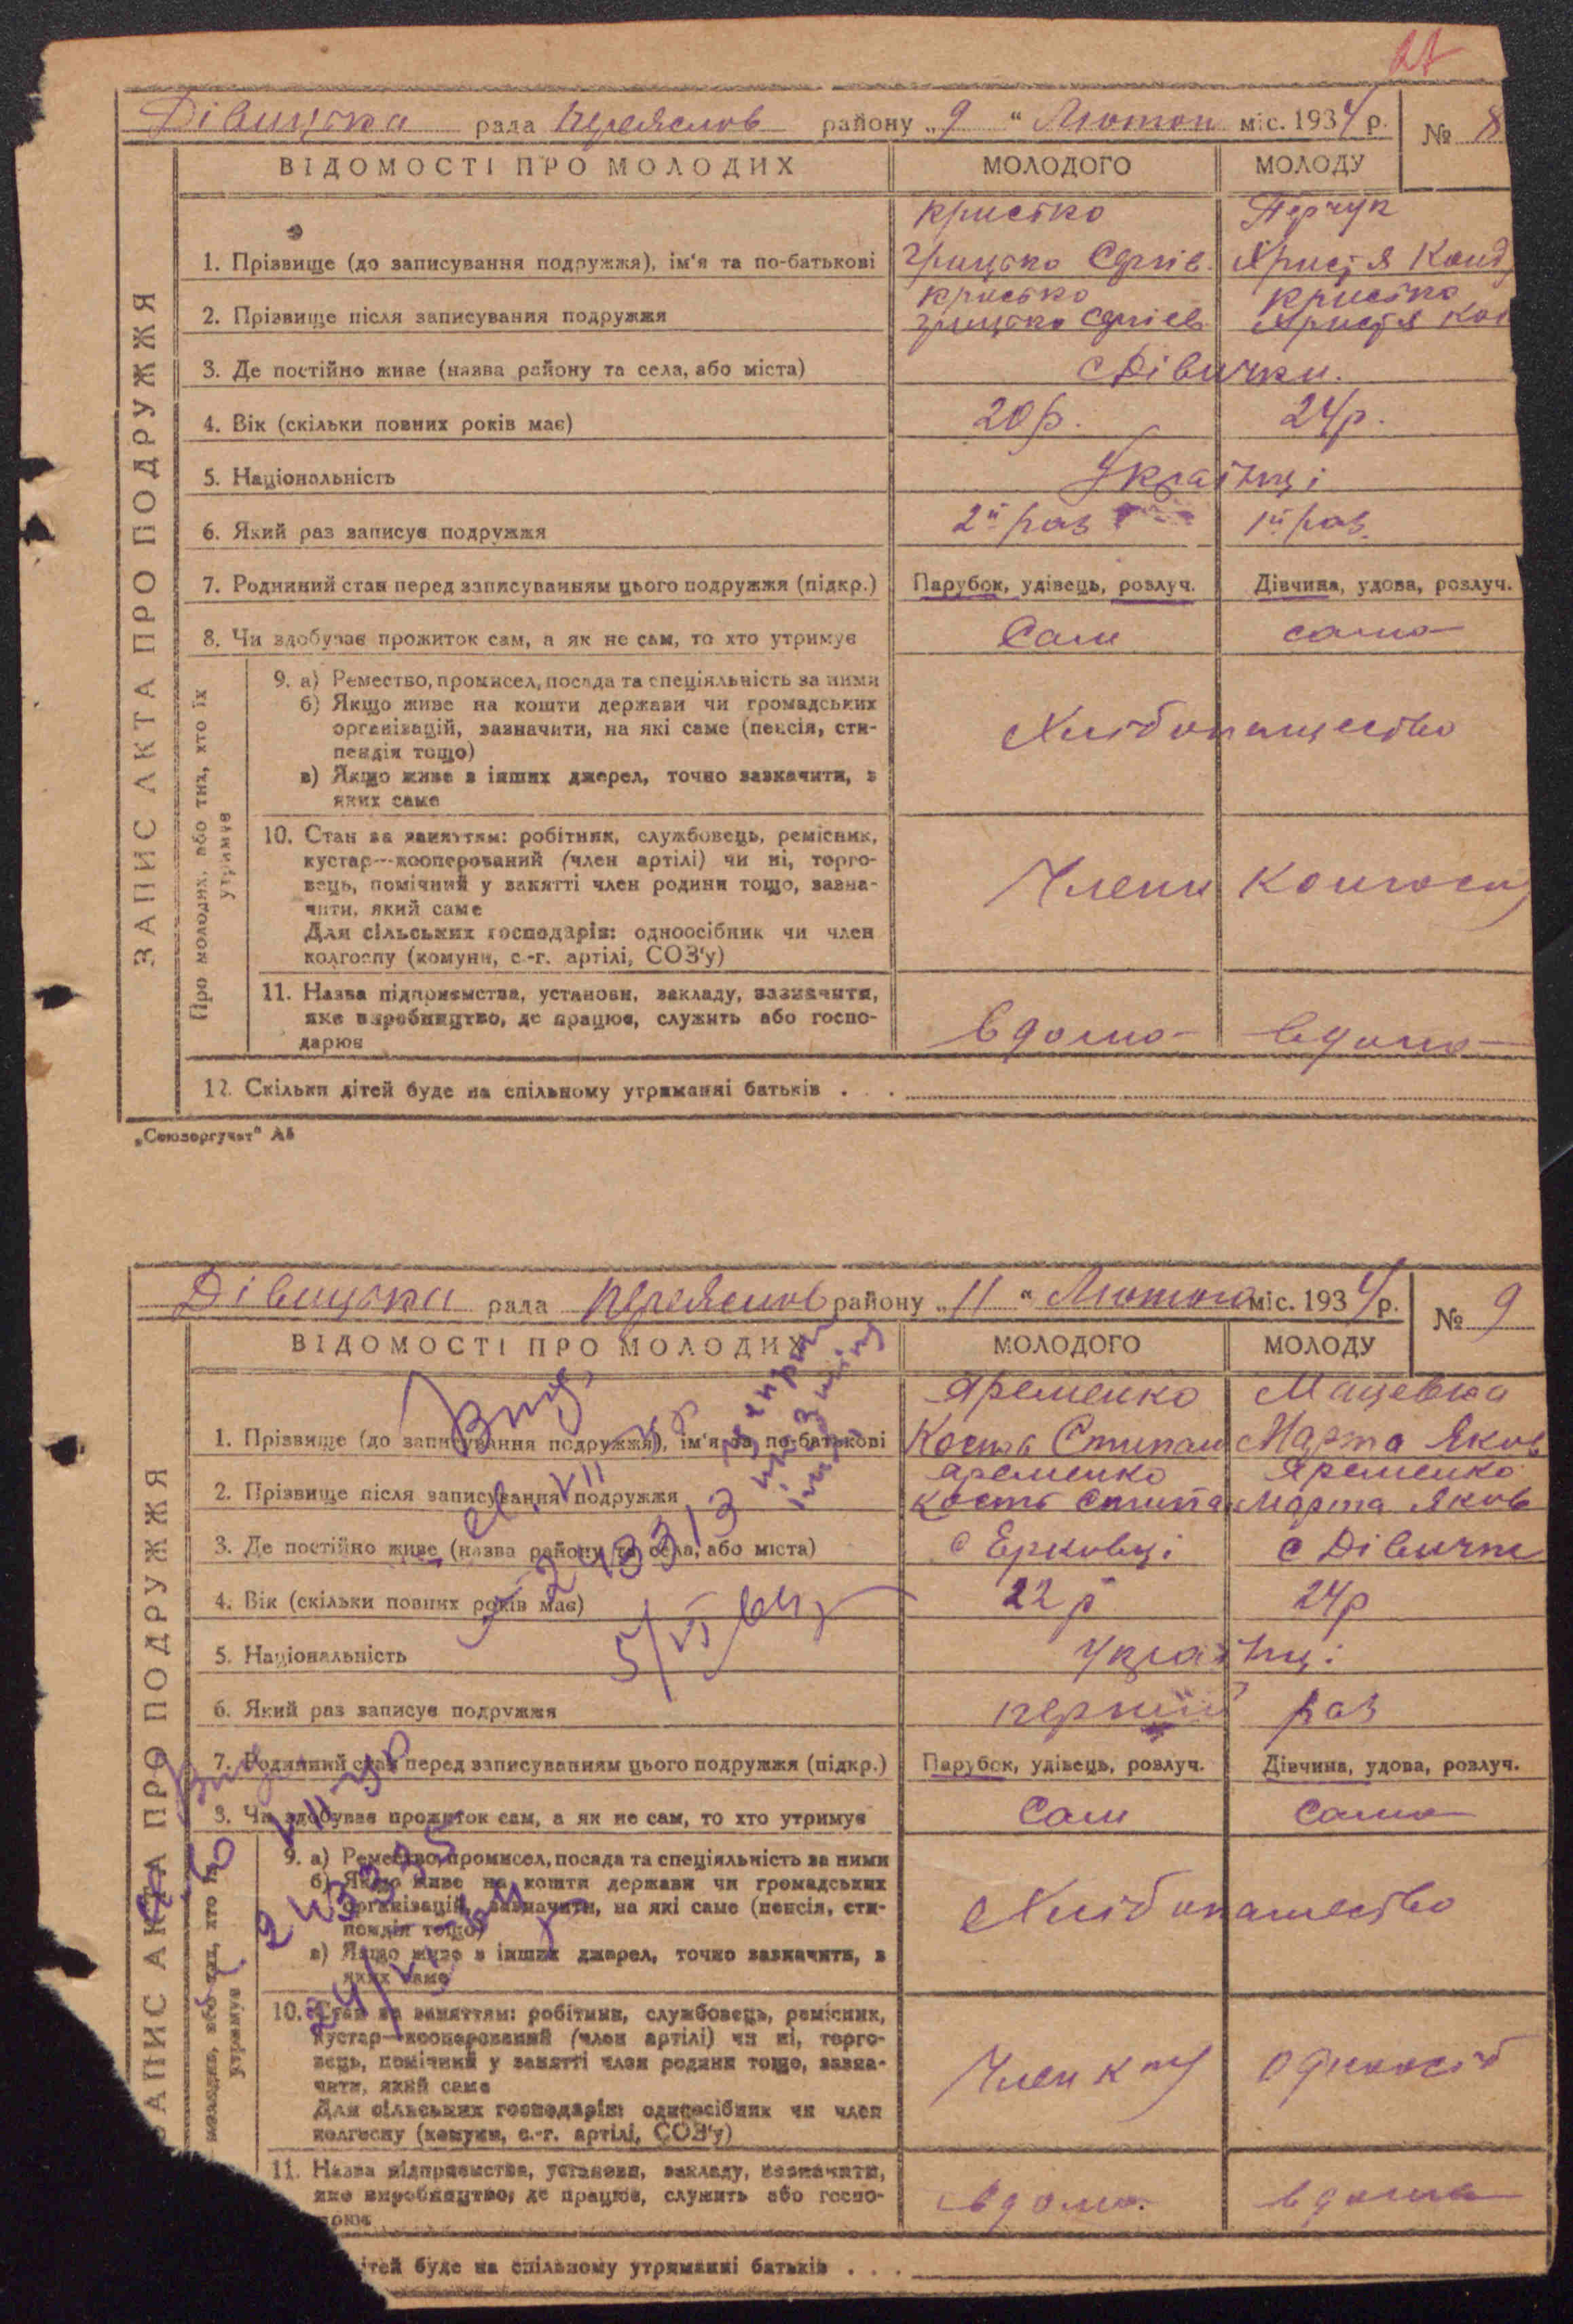 Дівицька рада Переяслов району „9" Лютого міс. 1934 р. № 8
ЗАПИС АКТА ПРО ПОДРУЖЖЯ
ВІДОМОСТІ ПРО МОЛОДИХ МОЛОДОГО МОЛОДУ
Кристко Перчук
1. Прізвище (до записування подружжя), ім'я та по-батькові Грицько Сергіїв. Христя Конд
Кристко Кристко
2. Прізвище після записування подружжя Грицько Сергіев Христя Кон
3. Де постійно живе (назва району та села, або міста) с Дівички.
4. Вік (скільки повних років має) 20 р. 24 р.
5. Національність Українці
6. Який раз записує подружжя 2й раз 1й раз.
7. Родинний стан перед записуванням цього подружжя (підкр.) Парубок, удівець, розлуч. Дівчина, удова, розлуч.
8. Чи здобуває прожиток сам, а як не сам, то хто утримує Сам сама
Про молодих, або тих, хто їх утримує
9. а) Ремество, промисел, посада та спеціяльність за ними
б) Якщо живе на кошти держави чи громадських
організацій, зазначити, на які саме (пенсія, сти-
пендія тощо) Хлібопашество
в) Якщо живе з інших джерел, точно зазначити, з
яких саме
10. Стан за заняттям: робітник, службовець, ремісник,
кустар—кооперований (член артілі) чи ні, торго-
вець, помічний у занятті член родини тощо, зазна- Члени колгоспу
чити, який саме
Для сільських господарів: одноосібник чи член
колгоспу (комуни, с.-г. артілі, СОЗ'у)
11. Назва підприємства, установи, закладу, зазначити,
яке виробництво, де працює, служить або госпо-
дарює вдома вдома
12. Скільки дітей буде на спільному утриманні батьків . . .
„Союзоргучет" А5
Дівицька рада Переяслов району „11" Лютого міс. 1934 р. № 9
ЗАПИС АКТА ПРО ПОДРУЖЖЯ
ВІДОМОСТІ ПРО МОЛОДИХ МОЛОДОГО МОЛОДУ
Яременко Мацевка
1. Прізвище (до записування подружжя), ім'я та по-батькові Кость Степан Марта Яков
Яременко Яременко
2. Прізвище після записування подружжя Кость Степа Марта Яков
3. Де постійно живе (назва району та села, або міста) с Ерковці с Дівички
4. Вік (скільки повних років має) 22 р 24 р
5/VI
5. Національність Українці
6. Який раз записує подружжя перший раз
7. Родинний стан перед записуванням цього подружжя (підкр.) Парубок, удівець, розлуч. Дівчина, удова, розлуч.
8. Чи здобуває прожиток сам, а як не сам, то хто утримує Сам Сама
9. а) Ремество, промисел, посада та спеціяльність за ними
б) Якщо живе на кошти держави чи громадських
організацій, зазначити, на які саме (пенсія, сти-
пендія тощо) Хлібопашество
в) Якщо живе з інших джерел, точно зазначити, з
яких саме
10. Стан за заняттям: робітник, службовець, ремісник,
кустар—кооперований (член артілі) чи ні, торго-
вець, помічний у занятті член родини тощо, зазна-
чити, який саме Член одноосіб
Для сільських господарів: одноосібник чи член
колгоспу (комуни, с.-г. артілі, СОЗ'у)
11. Назва підприємства, установи, закладу, зазначити,
яке виробництво, де працює, служить або госпо- вдома. вдома
ітей буде на спільному утриманні батьків . . .